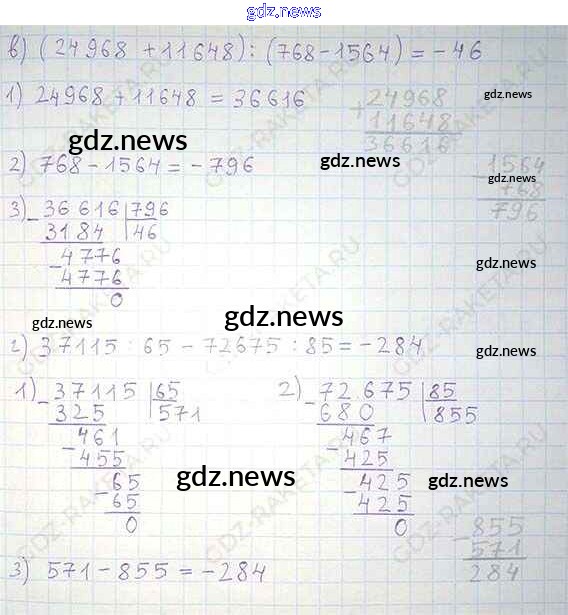 gdz.news
в) (24968 + 11648) : (768 - 1564) = - 46
1) 24968 + 11648 = 36616
+ 24968
11648
36616
gdz.news
gdz.news
gdz.news
2) 768 - 1564 = - 796
- 1564
768
796
gdz.news
3) - 36616 | 796
3184 | 46
- 4776
4776
0
gdz.news
gdz.news
г) 37115 : 65 - 72675 : 85 = - 284
gdz.news
1) - 37115 | 65
325 | 571
- 461
455
- 65
65
0
2) - 72.675 | 85
680 | 855
- 467
425
- 425
425
0
gdz.news
gdz.news
- 855
571
284
3) 571 - 855 = - 284
GDZ-RAKETA.RU